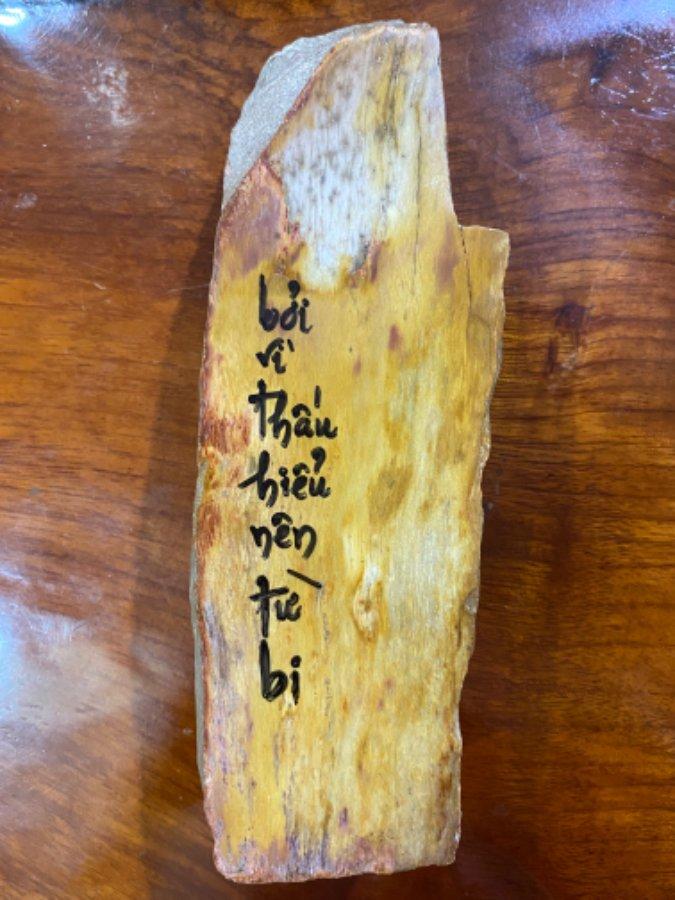 bởi
vì
thấu
hiểu
nên
từ
bi